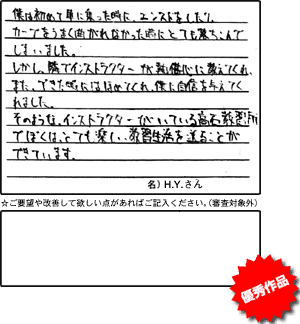 僕は初めて車に乗った時に、エンストをしたり、
カーブをうまく曲がれなかった時にとても落ちこんで
しまいました。
しかし、隣でインストラクターが熱心に教えてくれ、
また、できた時にはほめてくれ、僕に自信を与えてく
れました。
そのような、インストラクターがいている高石教習所
でぼくは、とても楽しい教習生活を送ることが
できています。
名) H.Y.さん
☆ご要望や改善して欲しい点があればご記入ください。(審査対象外)
優秀作品